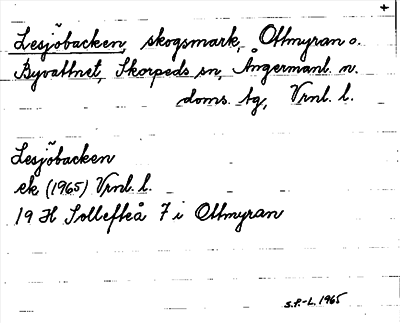 Lesjöbacken, skogsmark, Ottmyran o.
Byvattnet, Skorpeds sn, Ångermanl. n.
doms. tg, Vrnl. l.
Lesjöbacken
ek (1965) Vrnl. l.
19 H Sollefteå 7 i Ottmyran
S.P.-L. 1965